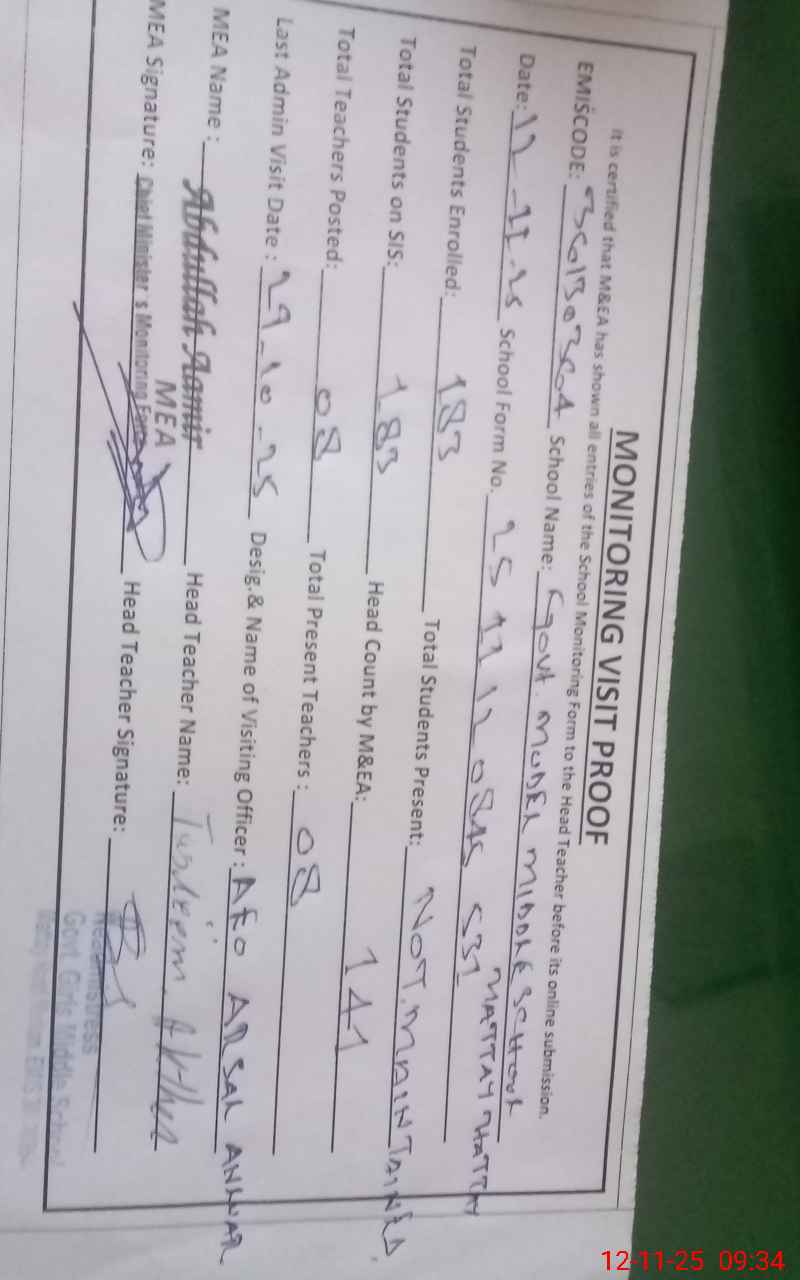 MONITORING VISIT PROOF
It is certified that M&EA has shown all entries of the School Monitoring Form to the Head Teacher before its online submission.
EMISCODE: School Name: Govt. MODEL MIDDLE SCHOOL
MATTAY HATTAY
Date: 12-11-25 School Form No. 25 11 12 08 531
Total Students Enrolled: 183 Total Students Present: NOT. MAINTAINED.
Total Students on SIS: 183 Head Count by M&EA: 141
Total Teachers Posted: 08 Total Present Teachers: 08
Last Admin Visit Date: 29-10-25 Desig.& Name of Visiting Officer: AEO ARSAL ANWAR
MEA Name: Abdullah Aamir Head Teacher Name: Akther
MEA
MEA Signature: Chief Minister's Monitoring Force Head Teacher Signature:
Headmistress
Govt. Girls Middle School
12-11-25 09:34